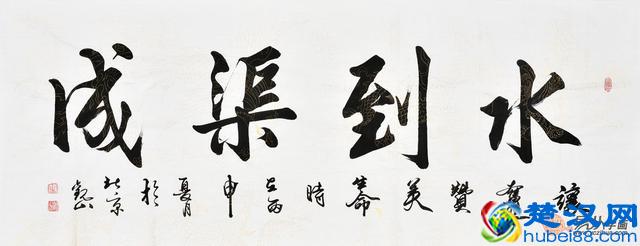 水到渠成
讓奮 贊美生命時 丙申夏月於北京
楚汉网
hubei88.com